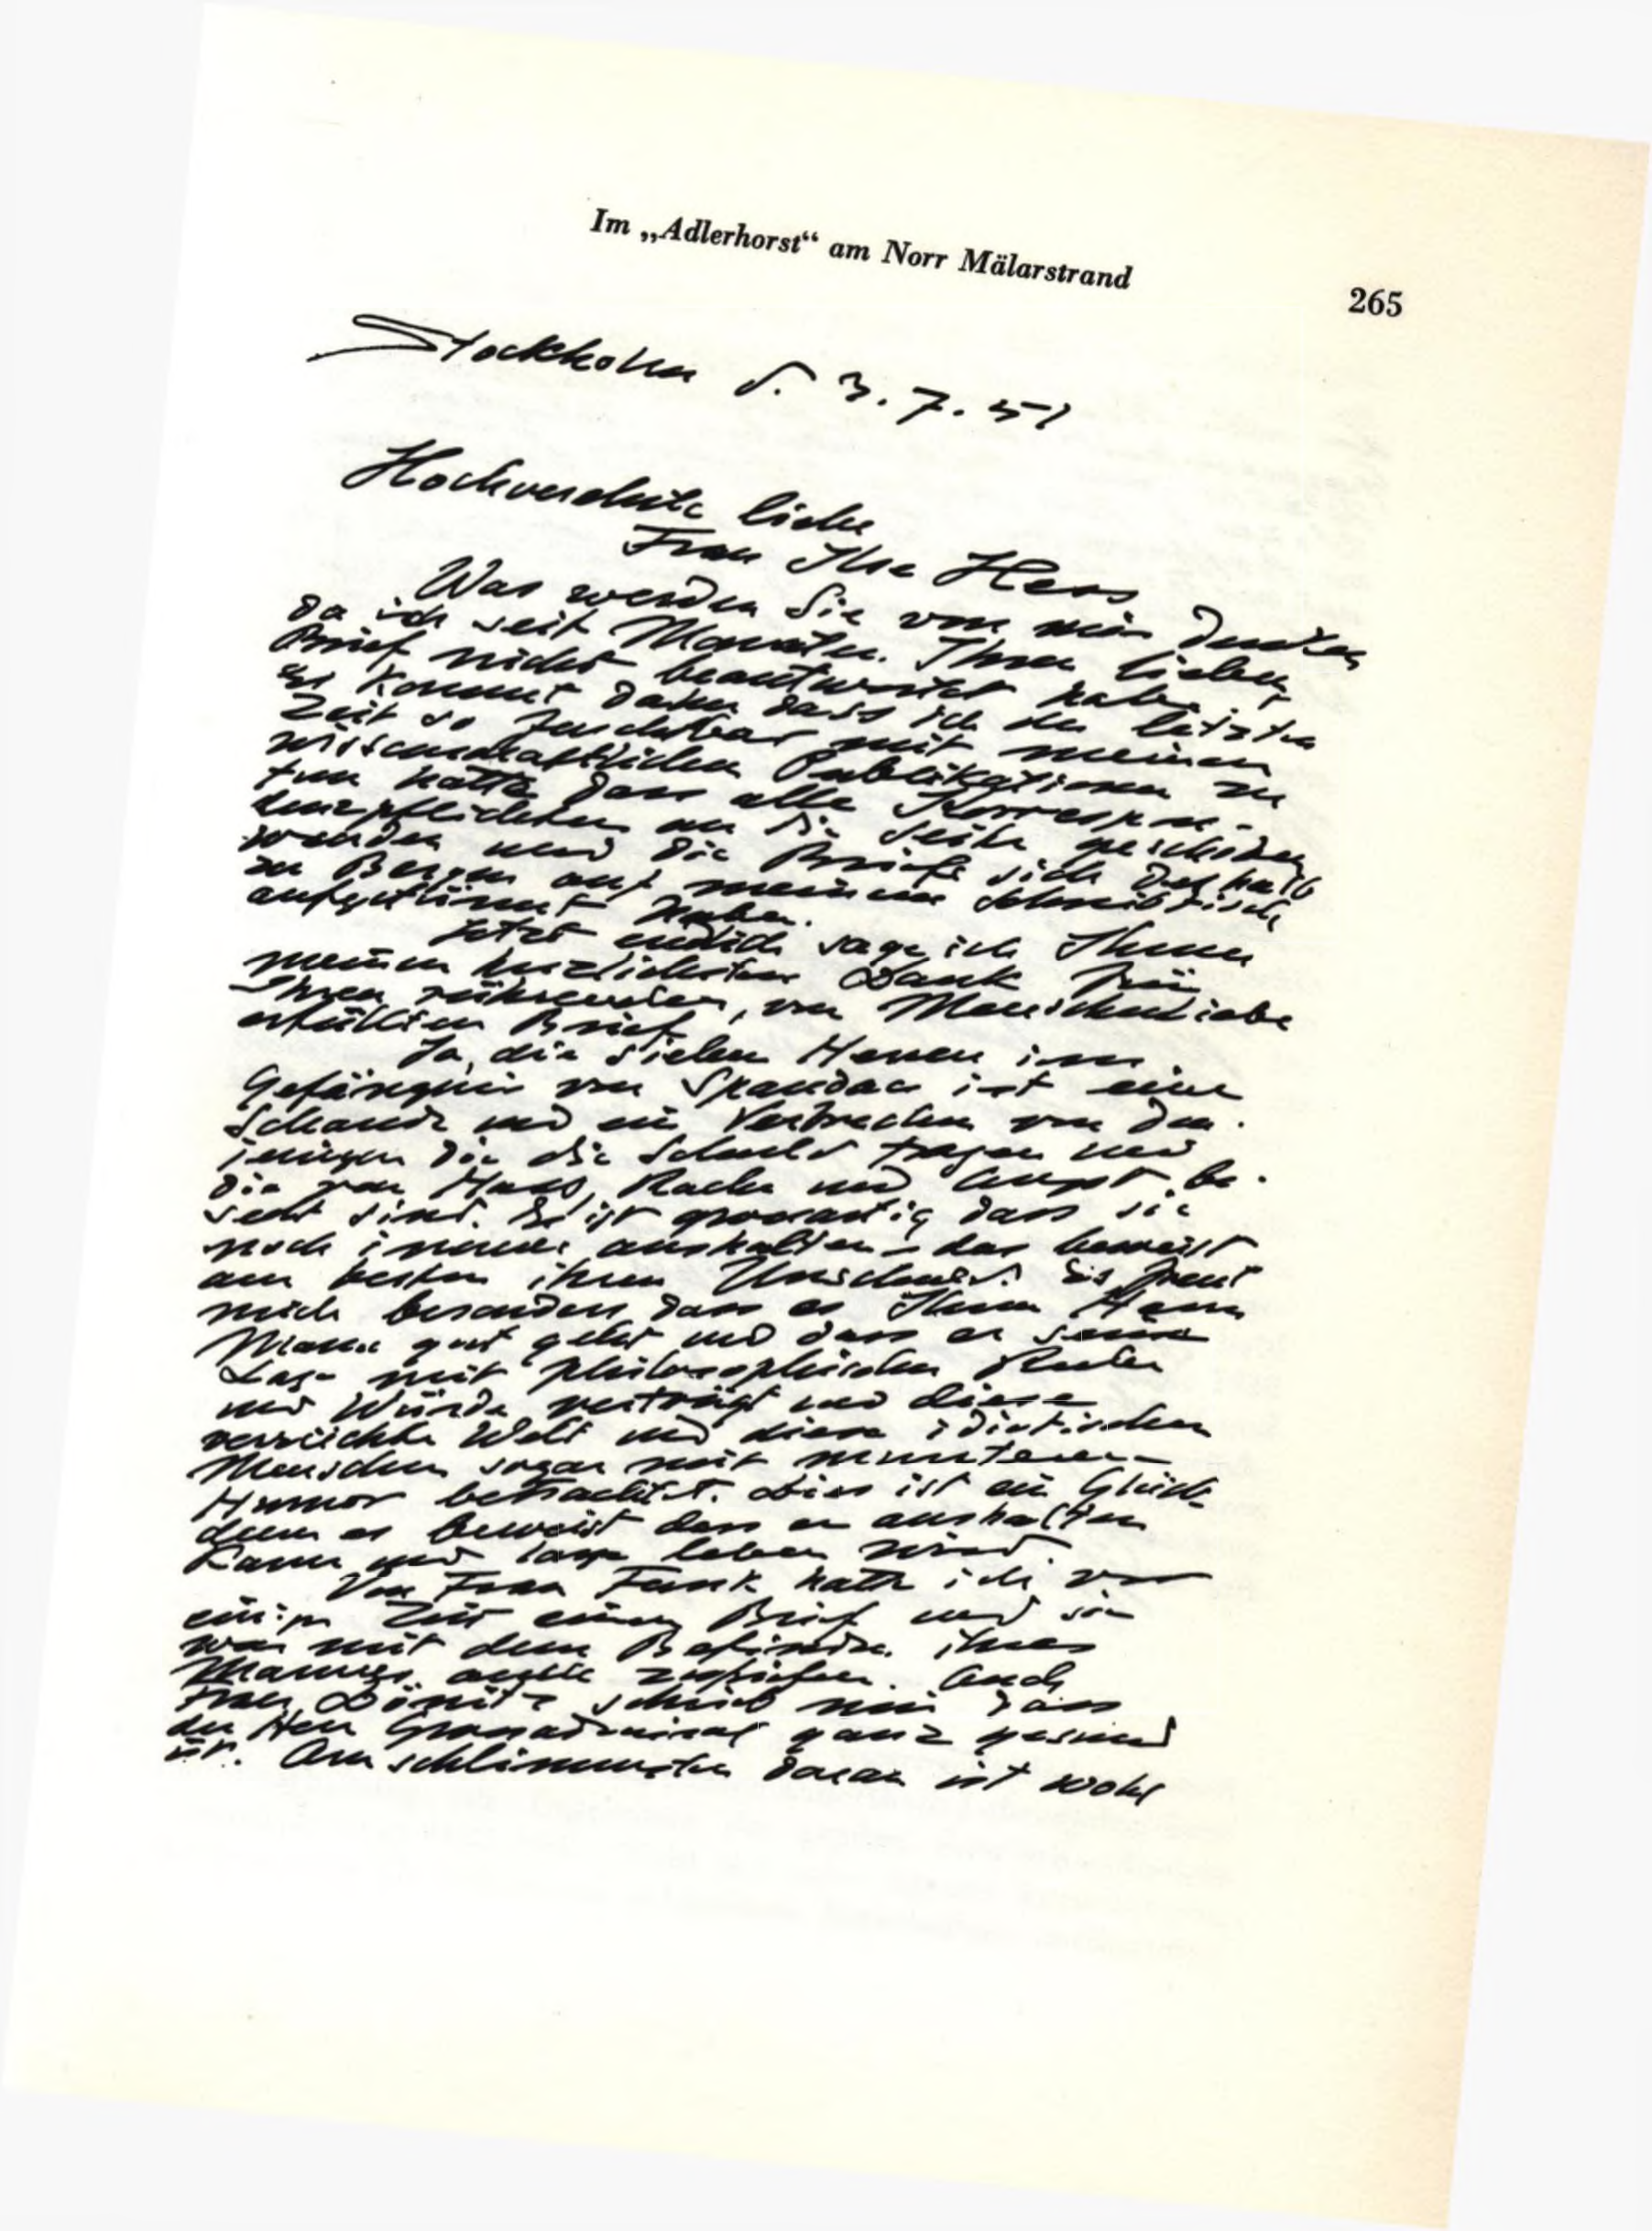 Im „Adlerhorst“ am Norr Mälarstrand
265
Stockholm d. 3.7.51
Hochverehrte liebe
Frau Ilse Hess
Was werden Sie von mir denken
da ich seit Monaten Ihren lieben
Brief nicht beantwortet habe.
Es kommt daher dass ich die letzte
Zeit so furchtbar mit meinen
wissenschaftlichen Publikationen zu
tun hatte dass alle Korrespon-
denzpflichten an die Seite geschoben
wurden und die Briefe sich deshalb
zu Bergen auf meinem Schreibtisch
aufgetürmt haben.
Jetzt endlich sage ich Ihnen
meinen herzlichsten Dank für
Ihren rührenden, von Menschenliebe
erfüllten Brief.
Ja, die sieben Herren im
Gefängnis von Spandau ist eine
Schande und ein Verbrechen von den-
jenigen die die Schuld tragen und
die von Hass, Rache und Angst be-
seelt sind. Es ist grossartig dass sie
noch immer aushalten - das beweist
am besten ihren Unschuld. Es freut
mich besonders dass es Ihrem Herrn
Mann gut geht und dass er seine
Lage mit philosophischer Ruhe
und Würde verträgt und diese
verrückte Welt und diese idiotischen
Menschen sogar mit munterem
Humor betrachtet. Dies ist ein Glück
denn es beweist dass er aushalten
kann und lange leben wird
Von Frau Funk hatte ich vor
einiger Zeit einen Brief und sie
war mit dem Befinden ihres
Mannes zufrieden. Auch
Frau Dönitz schrieb mir dass
der Herr Grossadmiral ganz gesund
ist. Am schlimmsten daran ist wohl